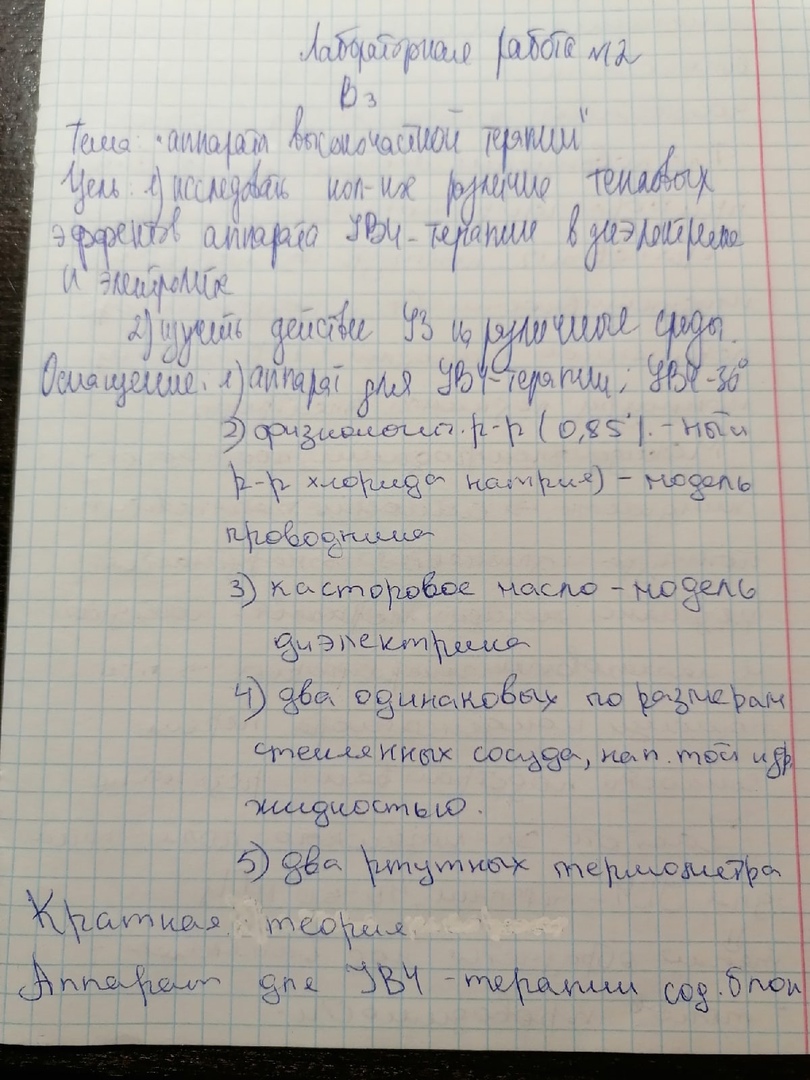 Лабораторная работа №2
В3
Тема: "аппарат высокочастной терапии"
Цель: 1) исследовать кол-их различие тепловых
эффектов аппарата УВЧ-терапии в диэлектрике
и электролите
2) изучить действие УЗ на различные среды.
Оснащение: 1) аппарат для УВЧ-терапии; УВЧ-30°
2) физиологич. р-р (0,85%-ный
р-р хлорида натрия) - модель
проводника
3) касторовое масло - модель
диэлектрика
4) два одинаковых по размерам
стеклянных сосуда, нап. той и др.
жидкостью.
5) два ртутных термометра
Краткая теория
Аппарат для УВЧ-терапии сод. блок